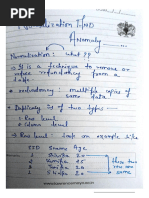 Normalization 1/NO
Anomaly
Normalization: what ??
• It is a technique to remove or
reduce redundancy from a
table.
• redundancy: multiple copies of
same data
• Duplicity is of two types—
• Row level
• Column level
• Row level: look an example like
SID Sname Age
1 20
2
1 20
these two
row are
same